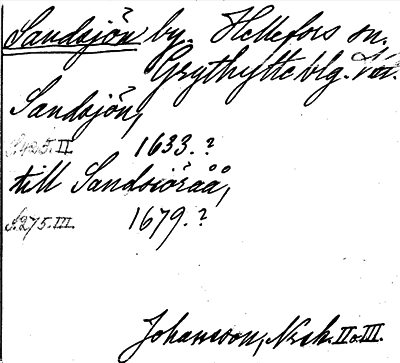 Sandsjön by. Hellefors sn.
Grythytte blg.
Sandsjön,
S. 425. II. 1633.?
till Sandsiöråå,
S. 275. III. 1679.?
Johansson, Nrsk. II o. III.